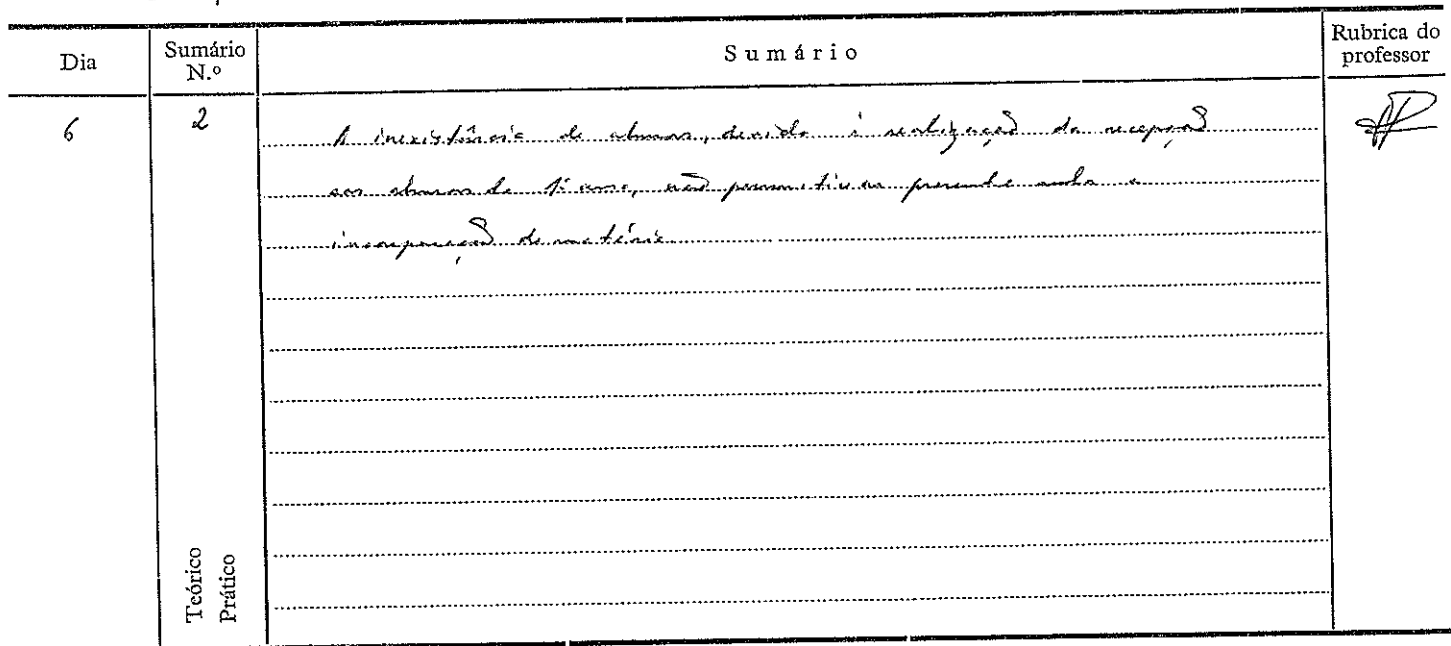 Dia
Sumário N.º
Sumário
Rubrica do professor
6
2
A inexistência de alunos, devido à realização da recepção
aos alunos do 1º ano, não permitiu na presente aula a
de matéria
Teórico
Prático